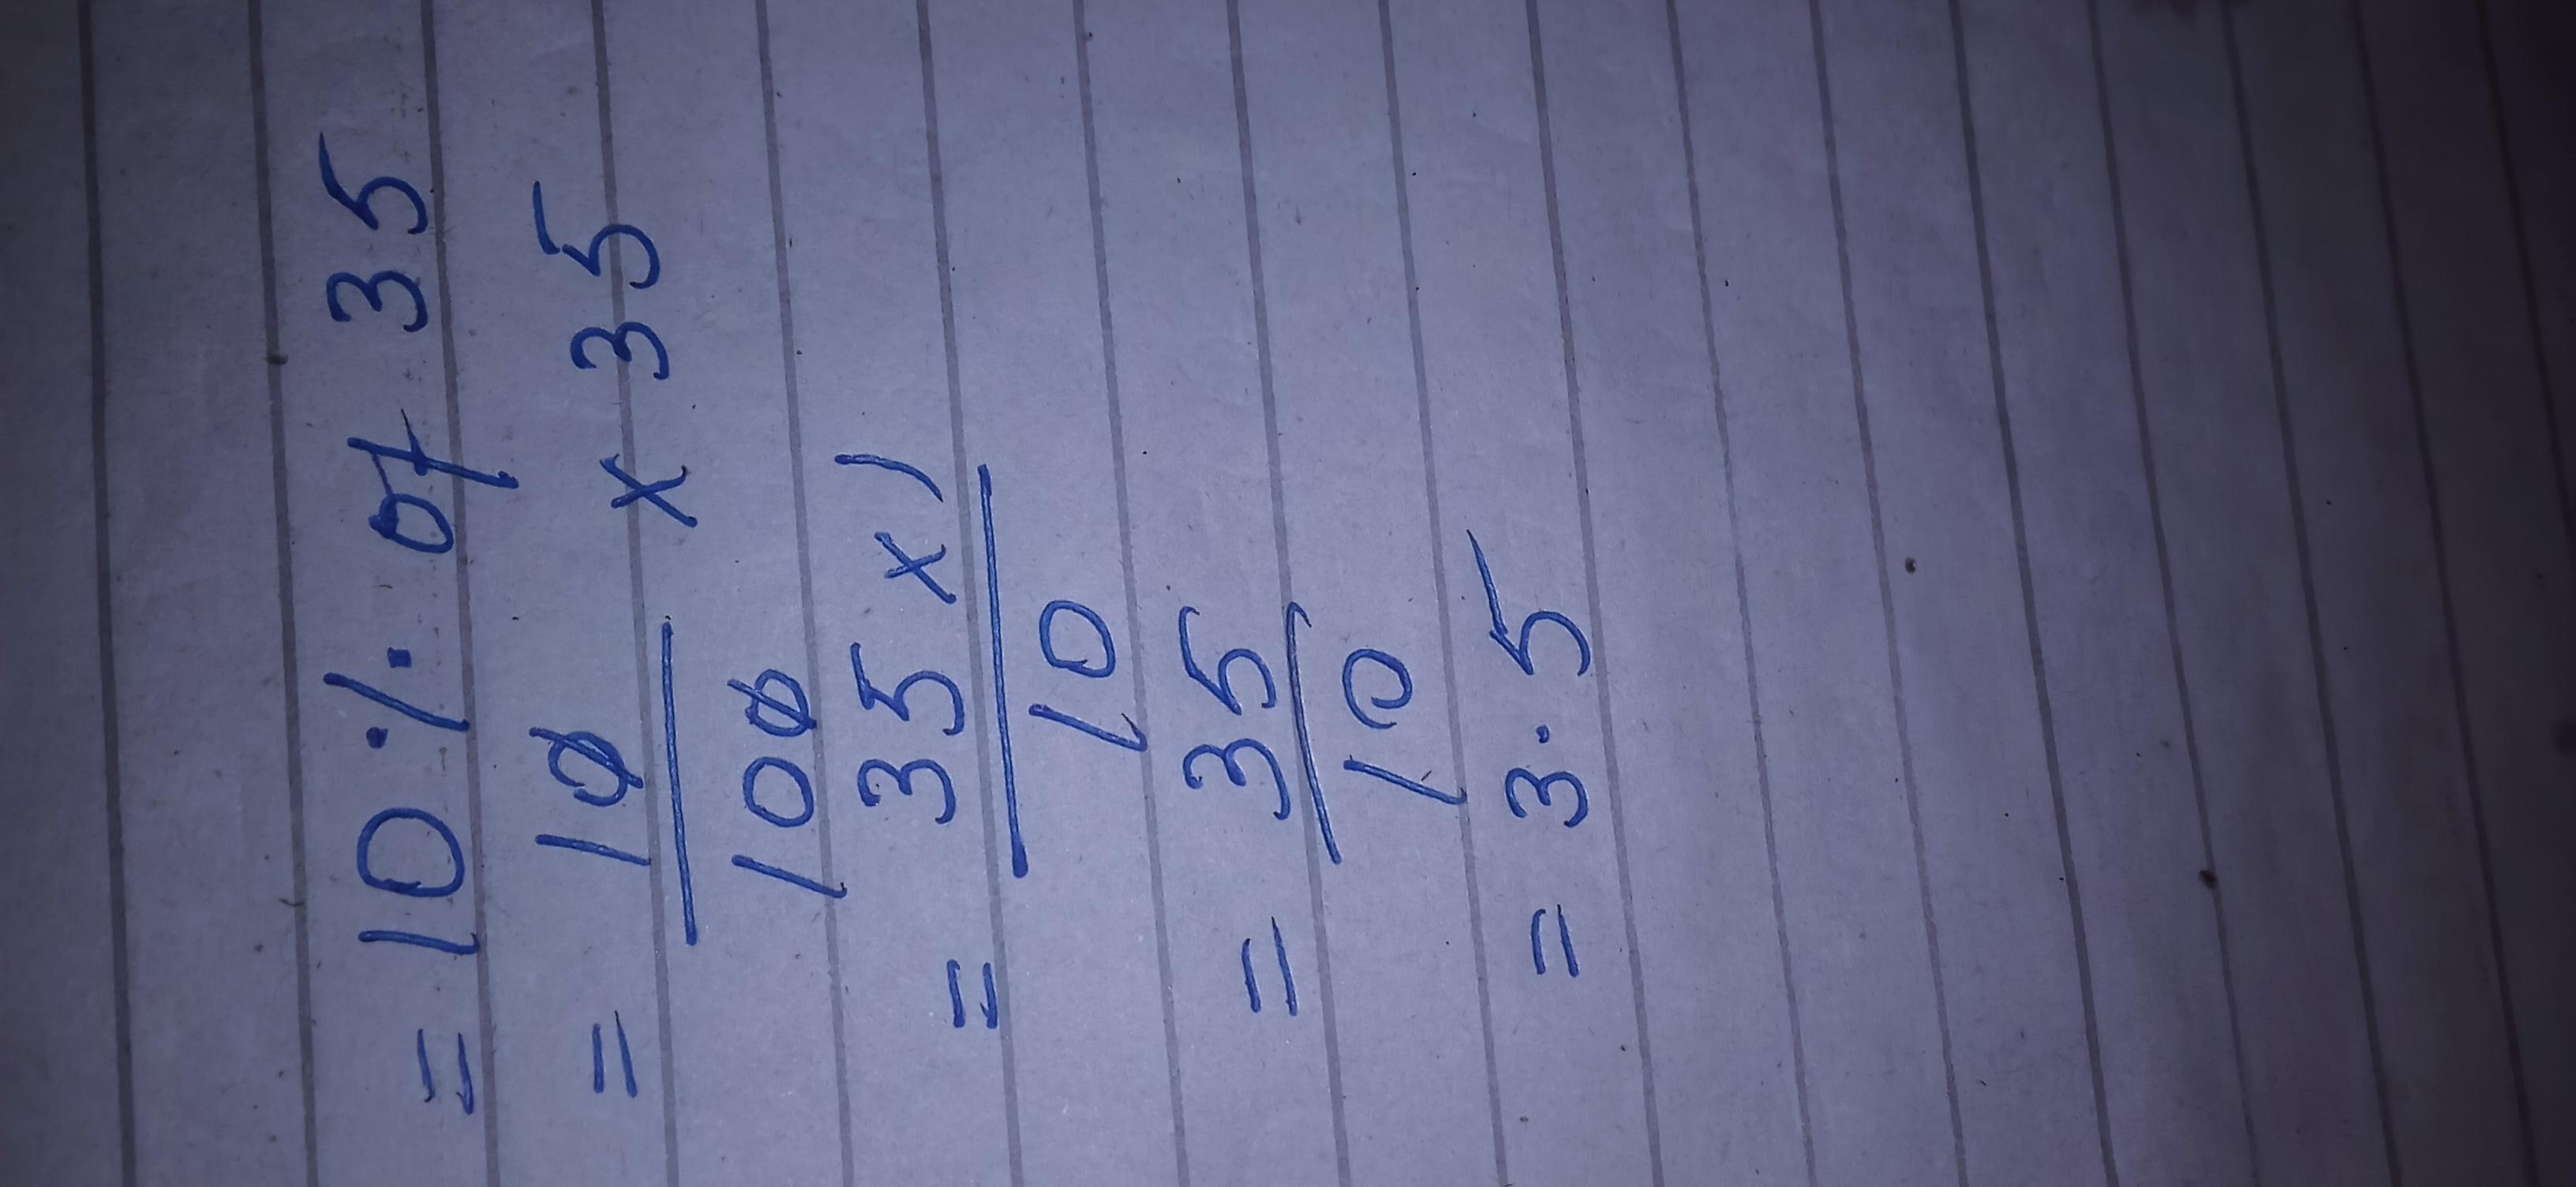 = 10 % of 35
= 10/100 x 35
= 35 x 1/10
= 35/10
= 3.5